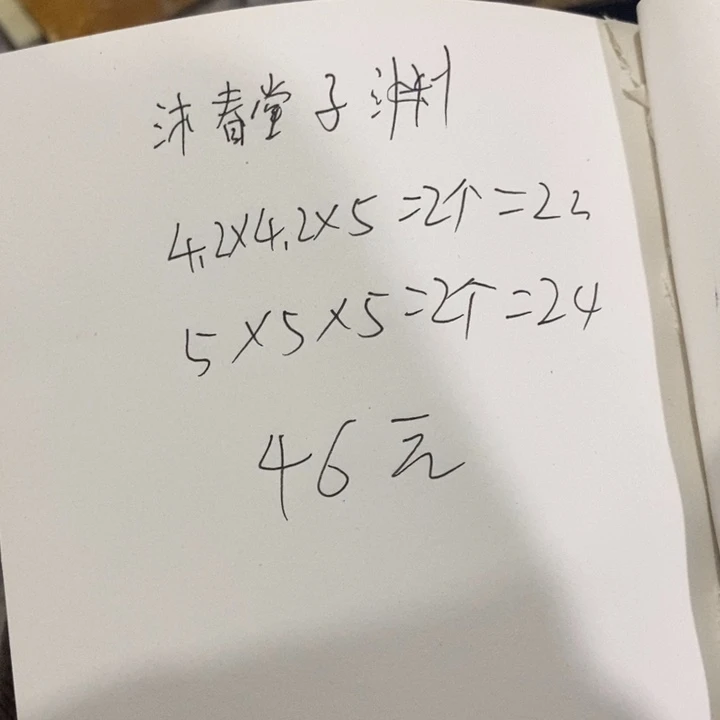 沐春堂子洲
4.2×4.2×5=2个=22
5×5×5=2个=24
46元